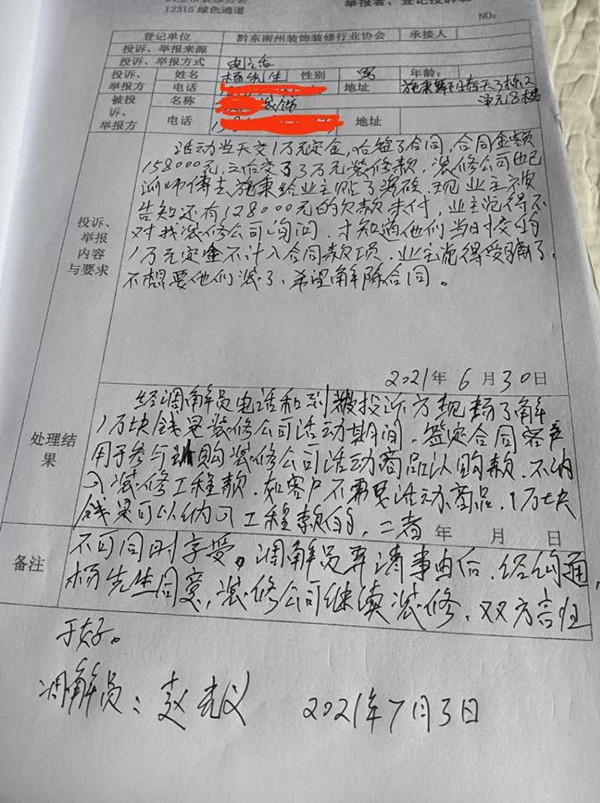 12315 绿色通道
举报者、登记投诉
NO:
登记单位 黔东南州装饰装修行业协会 承接人
投诉、举报来源
投诉、举报方式 电话
投诉、举报方 姓名 杨先生 性别 男 年龄:
电话 地址 施秉舞阳春天3栋2
单元18楼
被投诉、举报方 名称 装饰
电话 地址
投诉、举报内容与要求
活动当天交1万元定金,后签了合同,合同金额
158000元,之后交了3万元装修款,装修公司也已
派师傅去施秉给业主贴了瓷砖,现业主被
告知还有128000元的欠款未付,业主觉得不
对找装修公司询问,才知道他们当日交的
1万元定金不计入合同款项,业主觉得受骗了,
不想要他们装了,希望解除合同。
2021年 6月30日
处理结果
经调解员电话和到被投诉方现场了解
1万块钱是装修公司活动期间,签定合同客户
用于参与购装修公司活动商品认购款,不纳
入装修工程款,如客户不需要活动商品,1万块
钱是可以纳入工程款的,二者
年 月 日
备注
不可同时享受。调解员弄清事由后,经沟通,
杨先生同意,装修公司继续装修,双方言归
于好。
调解员:赵 2021年7月3日